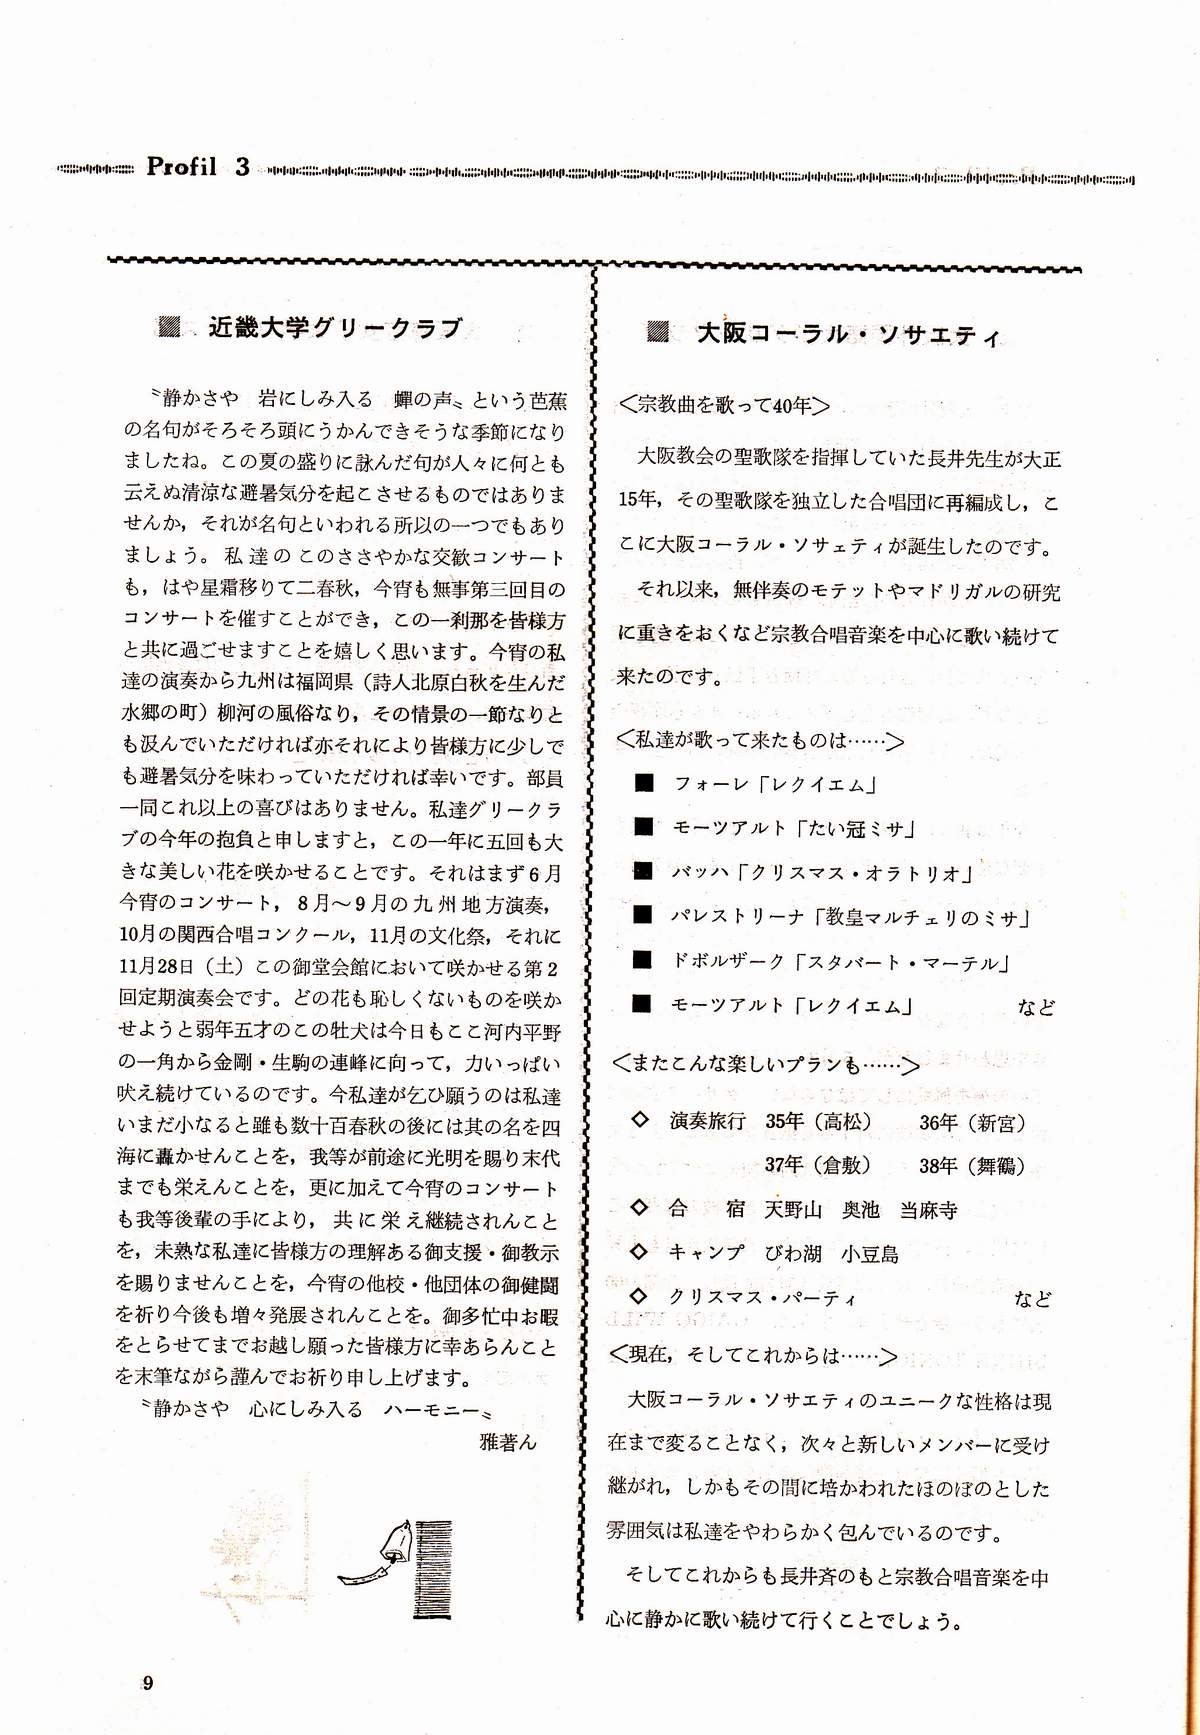 Profil 3
近畿大学グリークラブ
〝静かさや　岩にしみ入る　蟬の声〟という芭蕉
の名句がそろそろ頭にうかんできそうな季節になり
ましたね。この夏の盛りに詠んだ句が人々に何とも
云えぬ清涼な避暑気分を起こさせるものではありま
せんか，それが名句といわれる所以の一つでもあり
ましょう。私達のこのささやかな交歓コンサート
も，はや星霜移りて二春秋，今宵も無事第三回目の
コンサートを催すことができ，この一刹那を皆様方
と共に過ごせますことを嬉しく思います。今宵の私
達の演奏から九州は福岡県（詩人北原白秋を生んだ
水郷の町）柳河の風俗なり，その情景の一節なりと
も汲んでいただければ亦それにより皆様方に少しで
も避暑気分を味わっていただければ幸いです。部員
一同これ以上の喜びはありません。私達グリークラ
ブの今年の抱負と申しますと，この一年に五回も大
きな美しい花を咲かせることです。それはまず6月
今宵のコンサート，8月～9月の九州地方演奏，
10月の関西合唱コンクール，11月の文化祭，それに
11月28日（土）この御堂会館において咲かせる第2
回定期演奏会です。どの花も恥しくないものを咲か
せようと弱年五才のこの牡犬は今日もここ河内平野
の一角から金剛・生駒の連峰に向って，力いっぱい
吠え続けているのです。今私達が乞ひ願うのは私達
いまだ小なると雖も数十百春秋の後には其の名を四
海に轟かせんことを，我等が前途に光明を賜り末代
までも栄えんことを，更に加えて今宵のコンサート
も我等後輩の手により，共に栄え継続されんこと
を，未熟な私達に皆様方の理解ある御支援・御教示
を賜りませんことを，今宵の他校・他団体の御健闘
を祈り今後も増々発展されんことを。御多忙中お暇
をとらせてまでお越し願った皆様方に幸あらんこと
を末筆ながら謹んでお祈り申し上げます。
〝静かさや　心にしみ入る　ハーモニー〟
雅著ん
大阪コーラル・ソサエティ
＜宗教曲を歌って40年＞
大阪教会の聖歌隊を指揮していた長井先生が大正
15年，その聖歌隊を独立した合唱団に再編成し，こ
こに大阪コーラル・ソサェティが誕生したのです。
それ以来，無伴奏のモテットやマドリガルの研究
に重きをおくなど宗教合唱音楽を中心に歌い続けて
来たのです。
＜私達が歌って来たものは……＞
■　フォーレ「レクイエム」
■　モーツアルト「たい冠ミサ」
■　バッハ「クリスマス・オラトリオ」
■　パレストリーナ「教皇マルチェリのミサ」
■　ドボルザーク「スタバート・マーテル」
■　モーツアルト「レクイエム」　など
＜またこんな楽しいプランも……＞
◇　演奏旅行　35年（高松）　36年（新宮）
37年（倉敷）　38年（舞鶴）
◇　合　宿　天野山　奥池　当麻寺
◇　キャンプ　びわ湖　小豆島
◇　クリスマス・パーティ　など
＜現在，そしてこれからは……＞
大阪コーラル・ソサエティのユニークな性格は現
在まで変ることなく，次々と新しいメンバーに受け
継がれ，しかもその間に培かわれたほのぼのとした
雰囲気は私達をやわらかく包んでいるのです。
そしてこれからも長井斉のもと宗教合唱音楽を中
心に静かに歌い続けて行くことでしょう。
9